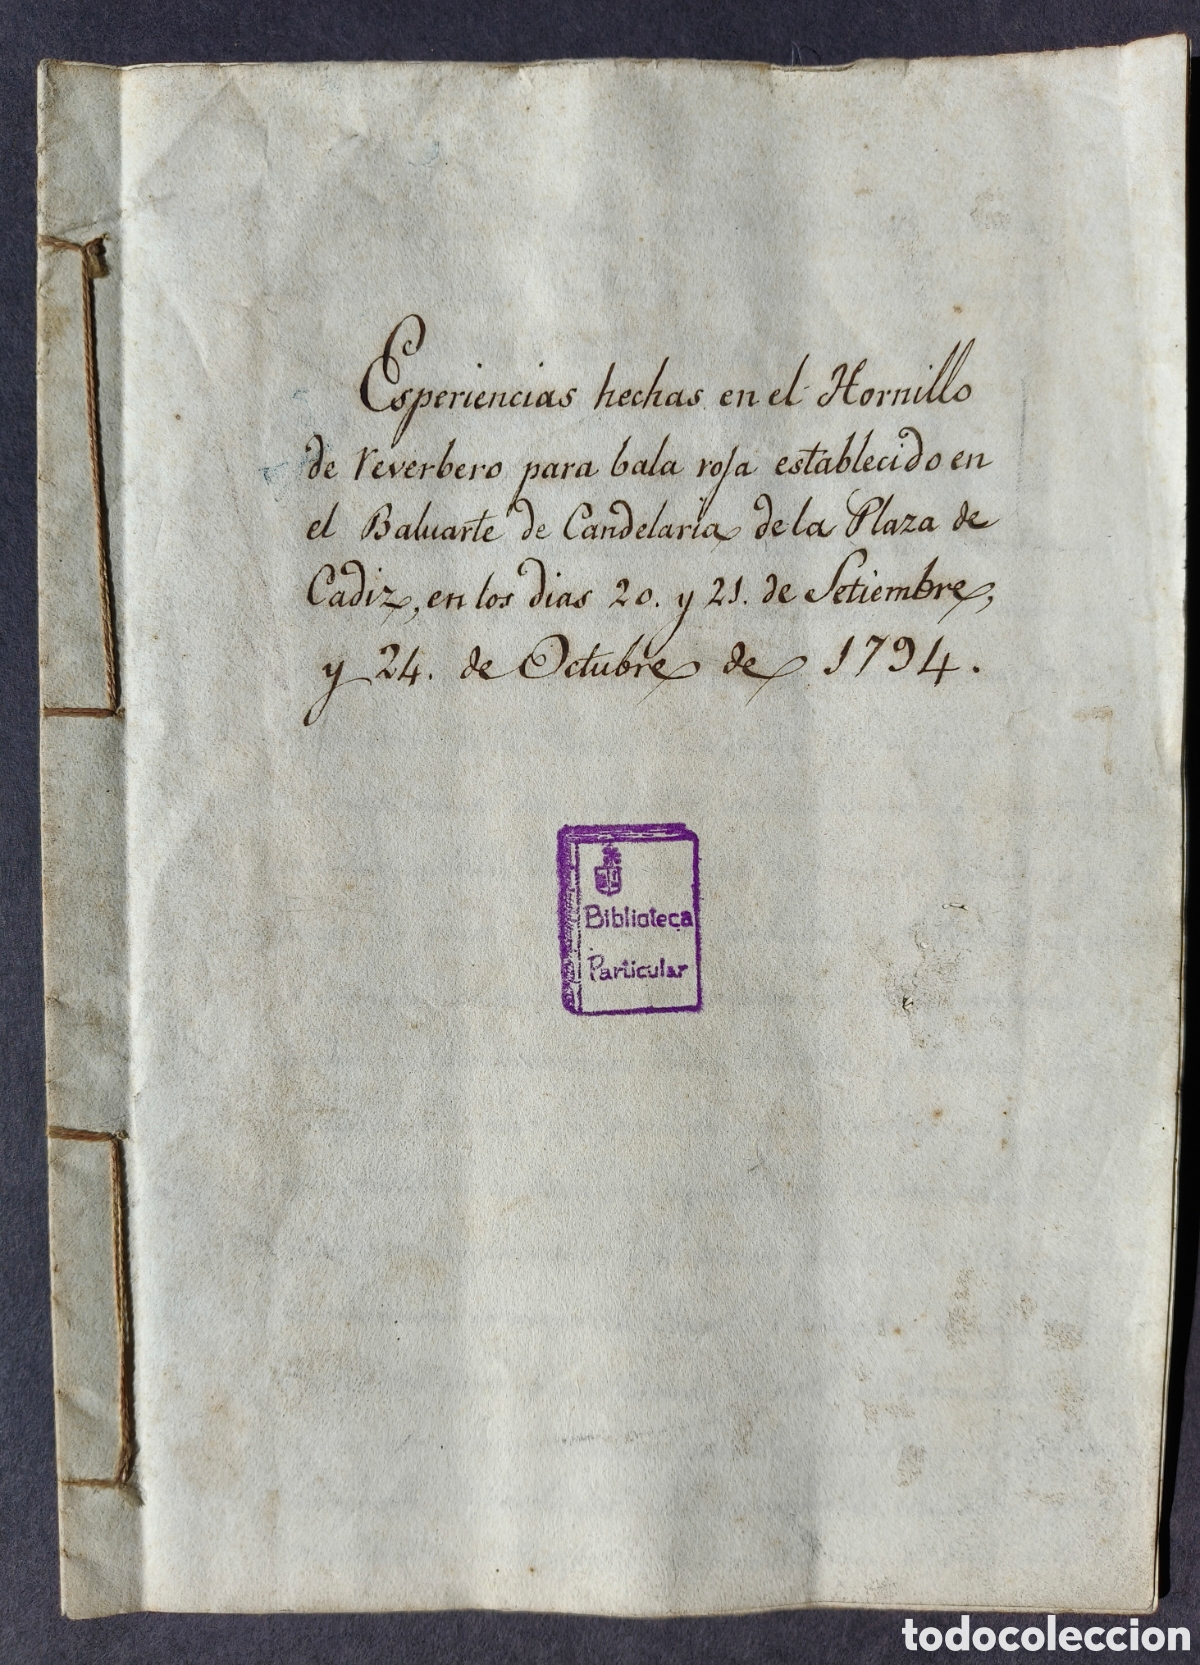 Esperiencias hechas en el Hornillo
de reverbero para bala roja establecido en
el Baluarte de Candelaria de la Plaza de
Cadiz, en los dias 20. y 21. de Setiembre,
y 24. de Octubre de 1794.
Biblioteca
Particular
todocoleccion